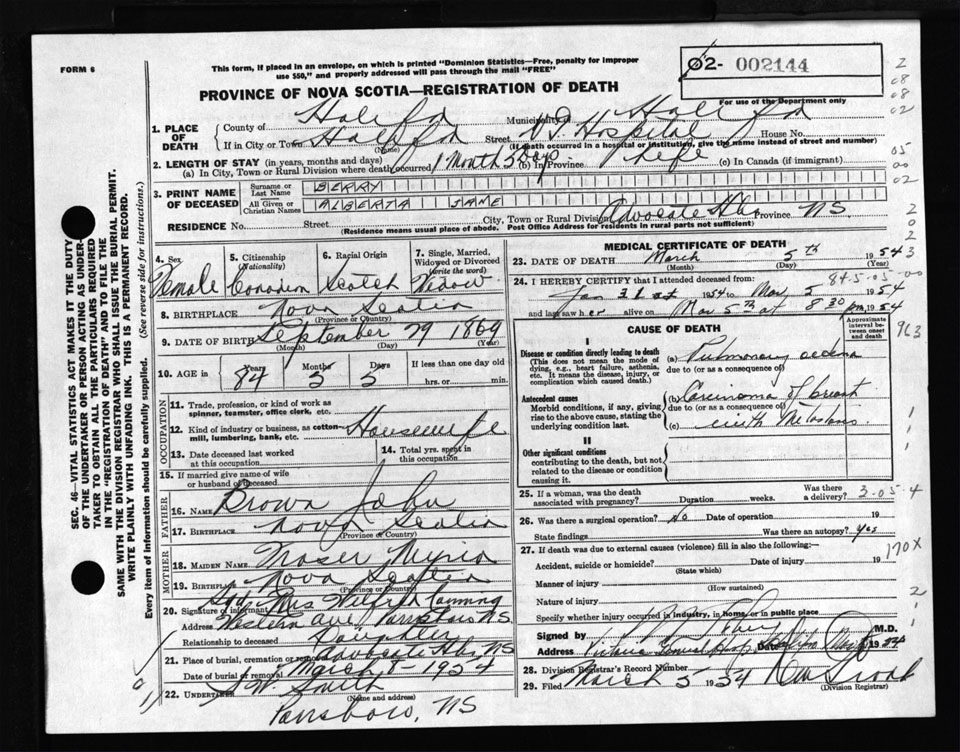 FORM 6
This form, if placed in an envelope, on which is printed "Dominion Statistics—Free, penalty for improper
use 550," and properly addressed will pass through the mail "FREE"
02- 002144
PROVINCE OF NOVA SCOTIA—REGISTRATION OF DEATH
For use of the Department only
1. PLACE OF DEATH
County of Halifax Municipality Halifax
If in City or Town Halifax (Name) Street V.G. Hospital House No.
(If death occurred in a hospital or institution, give the name instead of street and number)
2. LENGTH OF STAY (in years, months and days)
(a) In City, Town or Rural Division where death occurred 1 Month 5 Days (b) In Province life (c) In Canada (if immigrant)
3. PRINT NAME OF DECEASED
Surname or Last Name BERRY
All Given or Christian Names ALBERTA JANE
RESIDENCE No. Street City, Town or Rural Division Advocate Hbr Province NS
(Residence means usual place of abode. Post Office Address for residents in rural parts not sufficient)
SEC. 46—VITAL STATISTICS ACT MAKES IT THE DUTY
OF THE UNDERTAKER OR PERSON ACTING AS UNDER-
TAKER TO OBTAIN ALL THE PARTICULARS REQUIRED
IN THE "REGISTRATION OF DEATH" AND TO FILE THE
SAME WITH THE DIVISION REGISTRAR WHO SHALL ISSUE THE BURIAL PERMIT.
WRITE PLAINLY WITH UNFADING INK. THIS IS A PERMANENT RECORD.
Every item of information should be carefully supplied. (See reverse side for instructions.)
4. Sex Female
5. Citizenship (Nationality) Canadian
6. Racial Origin Scotch
7. Single, Married, Widowed or Divorced (write the word) Widow
8. BIRTHPLACE Nova Scotia
(Province or Country)
9. DATE OF BIRTH September 29 1869
(Month) (Day) (Year)
10. AGE in Years 84 Months 5 Days 5 If less than one day old hrs. or min.
OCCUPATION
11. Trade, profession, or kind of work as spinner, teamster, office clerk, etc.
12. Kind of industry or business, as cotton-mill, lumbering, bank, etc. Housewife
13. Date deceased last worked at this occupation
14. Total yrs. spent in this occupation
15. If married give name of wife or husband of deceased
FATHER
16. Name Brown John
17. Birthplace Nova Scotia
(Province or Country)
MOTHER
18. MAIDEN NAME
19. Birthplace Nova Scotia
(Province or Country)
20. Signature of informant Mrs Wilfred
Address Western Ave Parrsboro NS
Relationship to deceased Daughter
21. Place of burial, cremation or removal Advocate Hbr NS
Date of burial or removal March 8 - 1954
22. UNDERTAKER W. Smith
(Name and address)
Parrsboro, NS
MEDICAL CERTIFICATE OF DEATH
23. DATE OF DEATH March 5th 1954
(Month) (Day)
24. I HEREBY CERTIFY that I attended deceased from:
Jan 31st 1954 to Mar 5 1954
and last saw her alive on Mar 5th at 8.30 pm 1954
CAUSE OF DEATH
Approximate interval between onset and death
I
Disease or condition directly leading to death (a) Pulmonary oedema
(This does not mean the mode of dying, e.g., heart failure, asthenia, etc. It means the disease, injury, or complication which caused death.)
due to (or as a consequence of)
Antecedent causes (b) Carcinoma of breast
Morbid conditions, if any, giving rise to the above cause, stating the underlying condition last.
due to (or as a consequence of)
(c) with Metastasis
II
Other significant conditions
contributing to the death, but not related to the disease or condition causing it.
25. If a woman, was the death associated with pregnancy? Duration weeks. Was there a delivery?
26. Was there a surgical operation? No Date of operation 19
State findings Was there an autopsy? Yes
27. If death was due to external causes (violence) fill in also the following:—
Accident, suicide or homicide? Date of injury 19
(State which)
Manner of injury
(How sustained)
Nature of injury
Specify whether injury occurred in industry, in home, or in public place
Signed by M.D.
Address Victoria General Hosp Date 1954
28. Division Registrar's Record Number
29. Filed March 5 1954
(Division Registrar)
170X
963